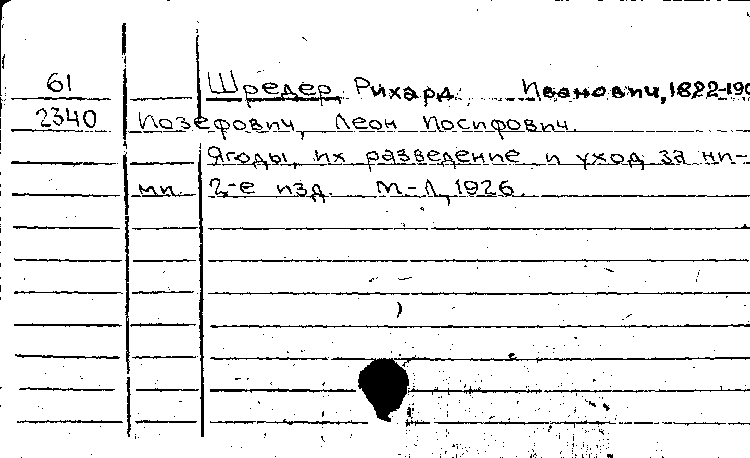 61 Шредер, Рихард Иванович, 1822-190
2340 Иозефович, Леон Иосифович.
Ягоды, их разведение и уход за ни-
ми. 2-е изд. М-Л, 1926.